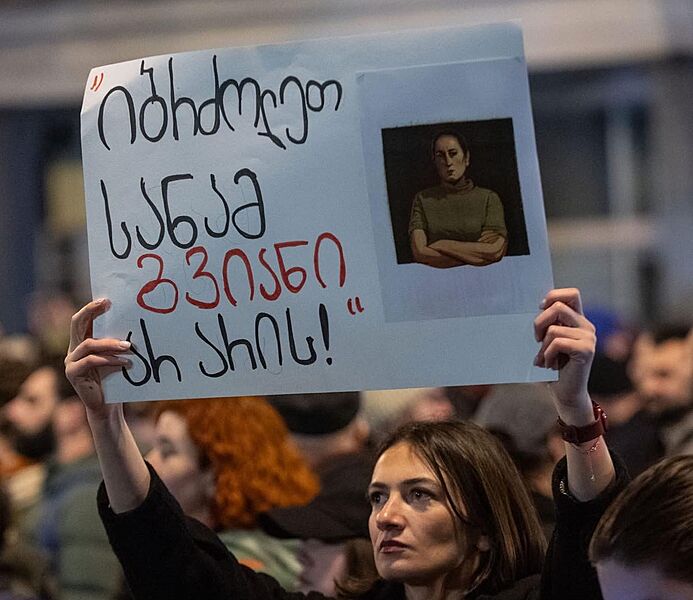 ” იბრძოლეთ
სანამ
გვიანი
არ არის! “